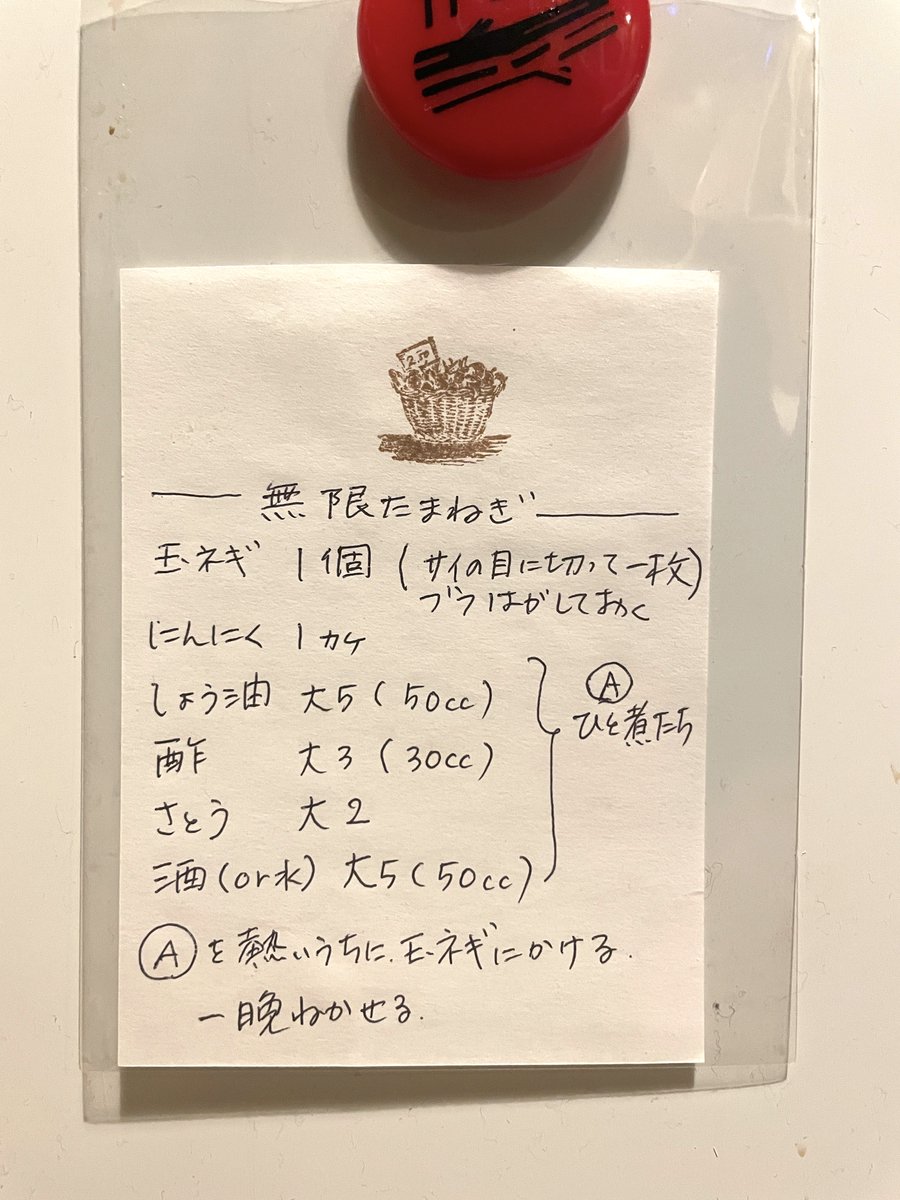 2.50
無限たまねぎ
玉ネギ 1個 (サイの目に切って一枚)
ブラはがしておく
にんにく 1カケ
しょう油 大5(50cc)
酢 大3(30cc)
さとう 大2
酒(or水) 大5(50cc)
Ⓐ
ひと煮たち
Ⓐを熱いうちに、玉ネギにかける.
一晩ねかせる.